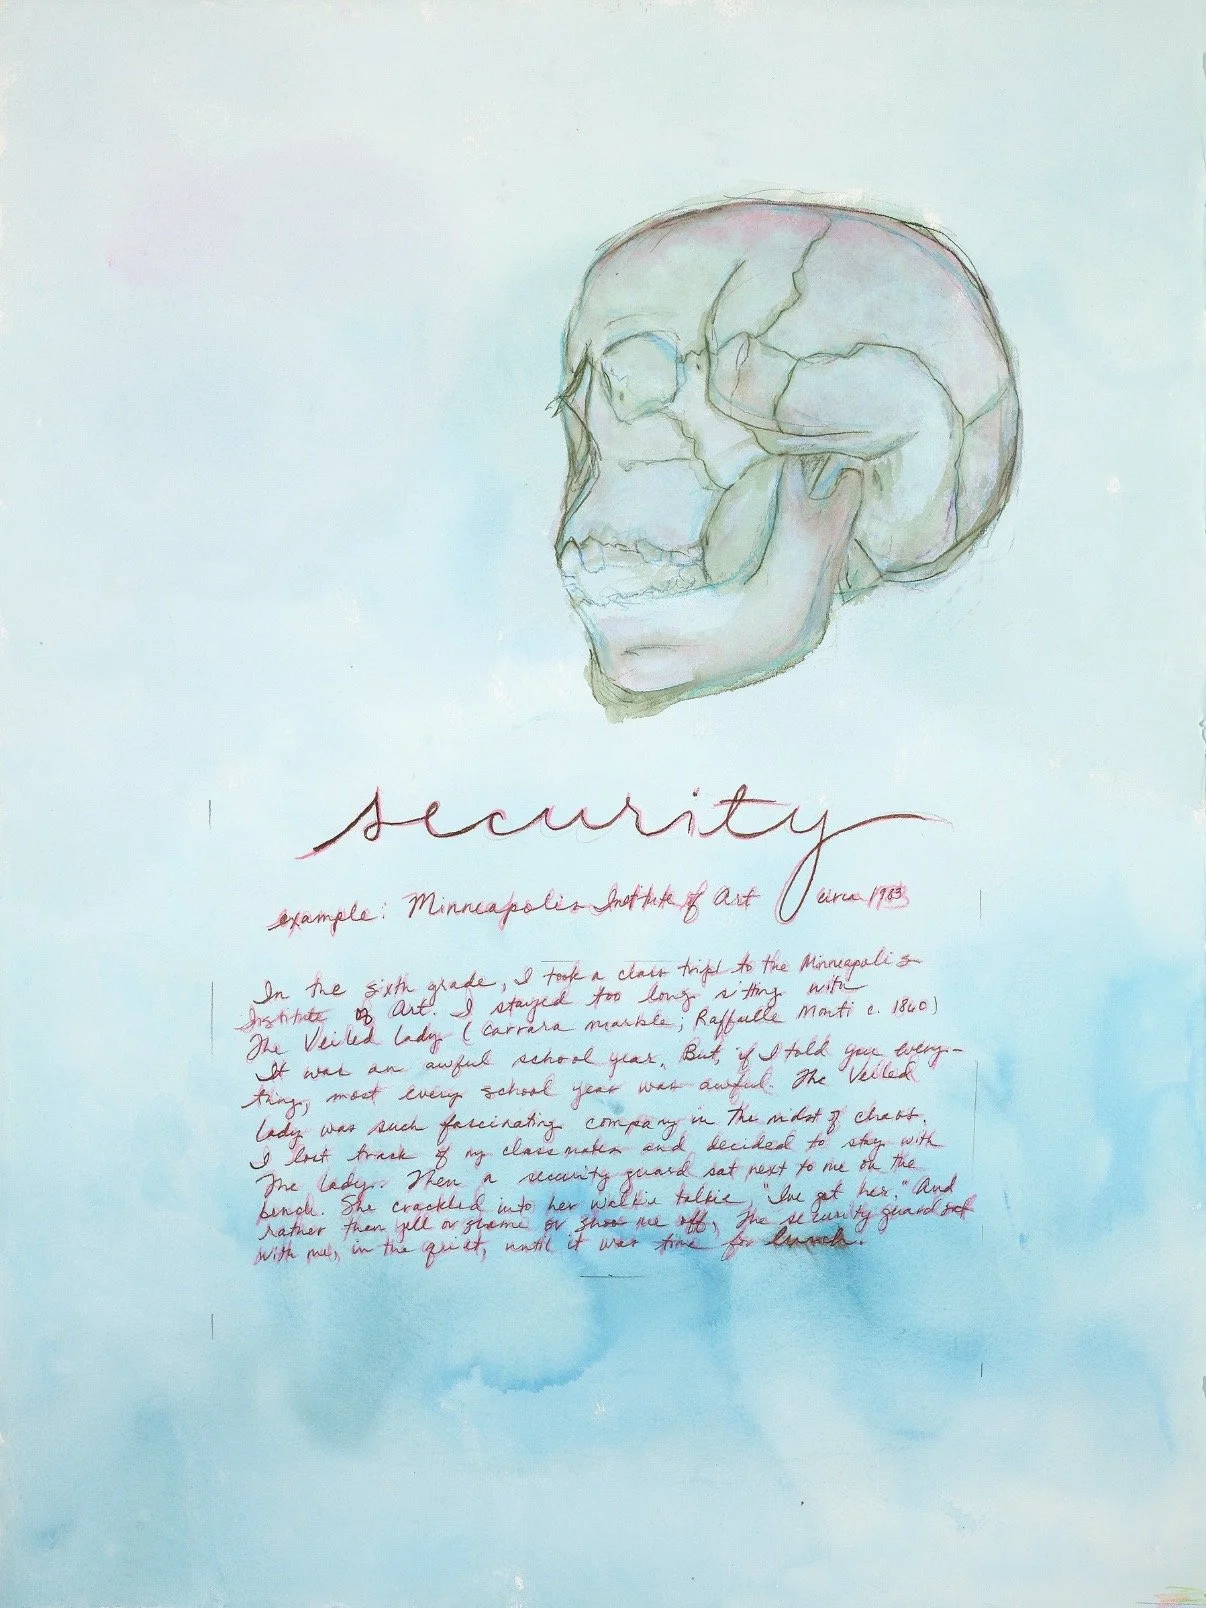 security
example: Minneapolis Institute of Art circa 1983
In the sixth grade, I took a class trip to the Minneapolis
Institute of Art. I stayed too long sitting with
The Veiled Lady (Carrara marble; Raffaelle Monti c. 1860)
It was an awful school year. But, if I told you every-
thing, most every school year was awful. The Veiled
Lady was such fascinating company in the midst of chaos.
I lost track of my classmates and decided to stay with
The Lady. Then a security guard sat next to me on the
bench. She crackled into her walkie talkie, "I've got her." And
rather than yell or shame or shoo me off, the security guard sat
with me, in the quiet, until it was time for lunch.